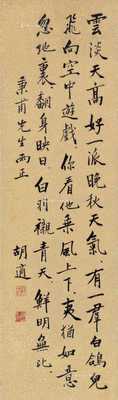 雲淡天高好一派晚秋天氣有一羣白鴿兒
飛向空中遊戲你看他乘風上下夷猶如意
忽地裏翻身映日白羽襯青天鮮明無比
秉甫先生兩正
胡適